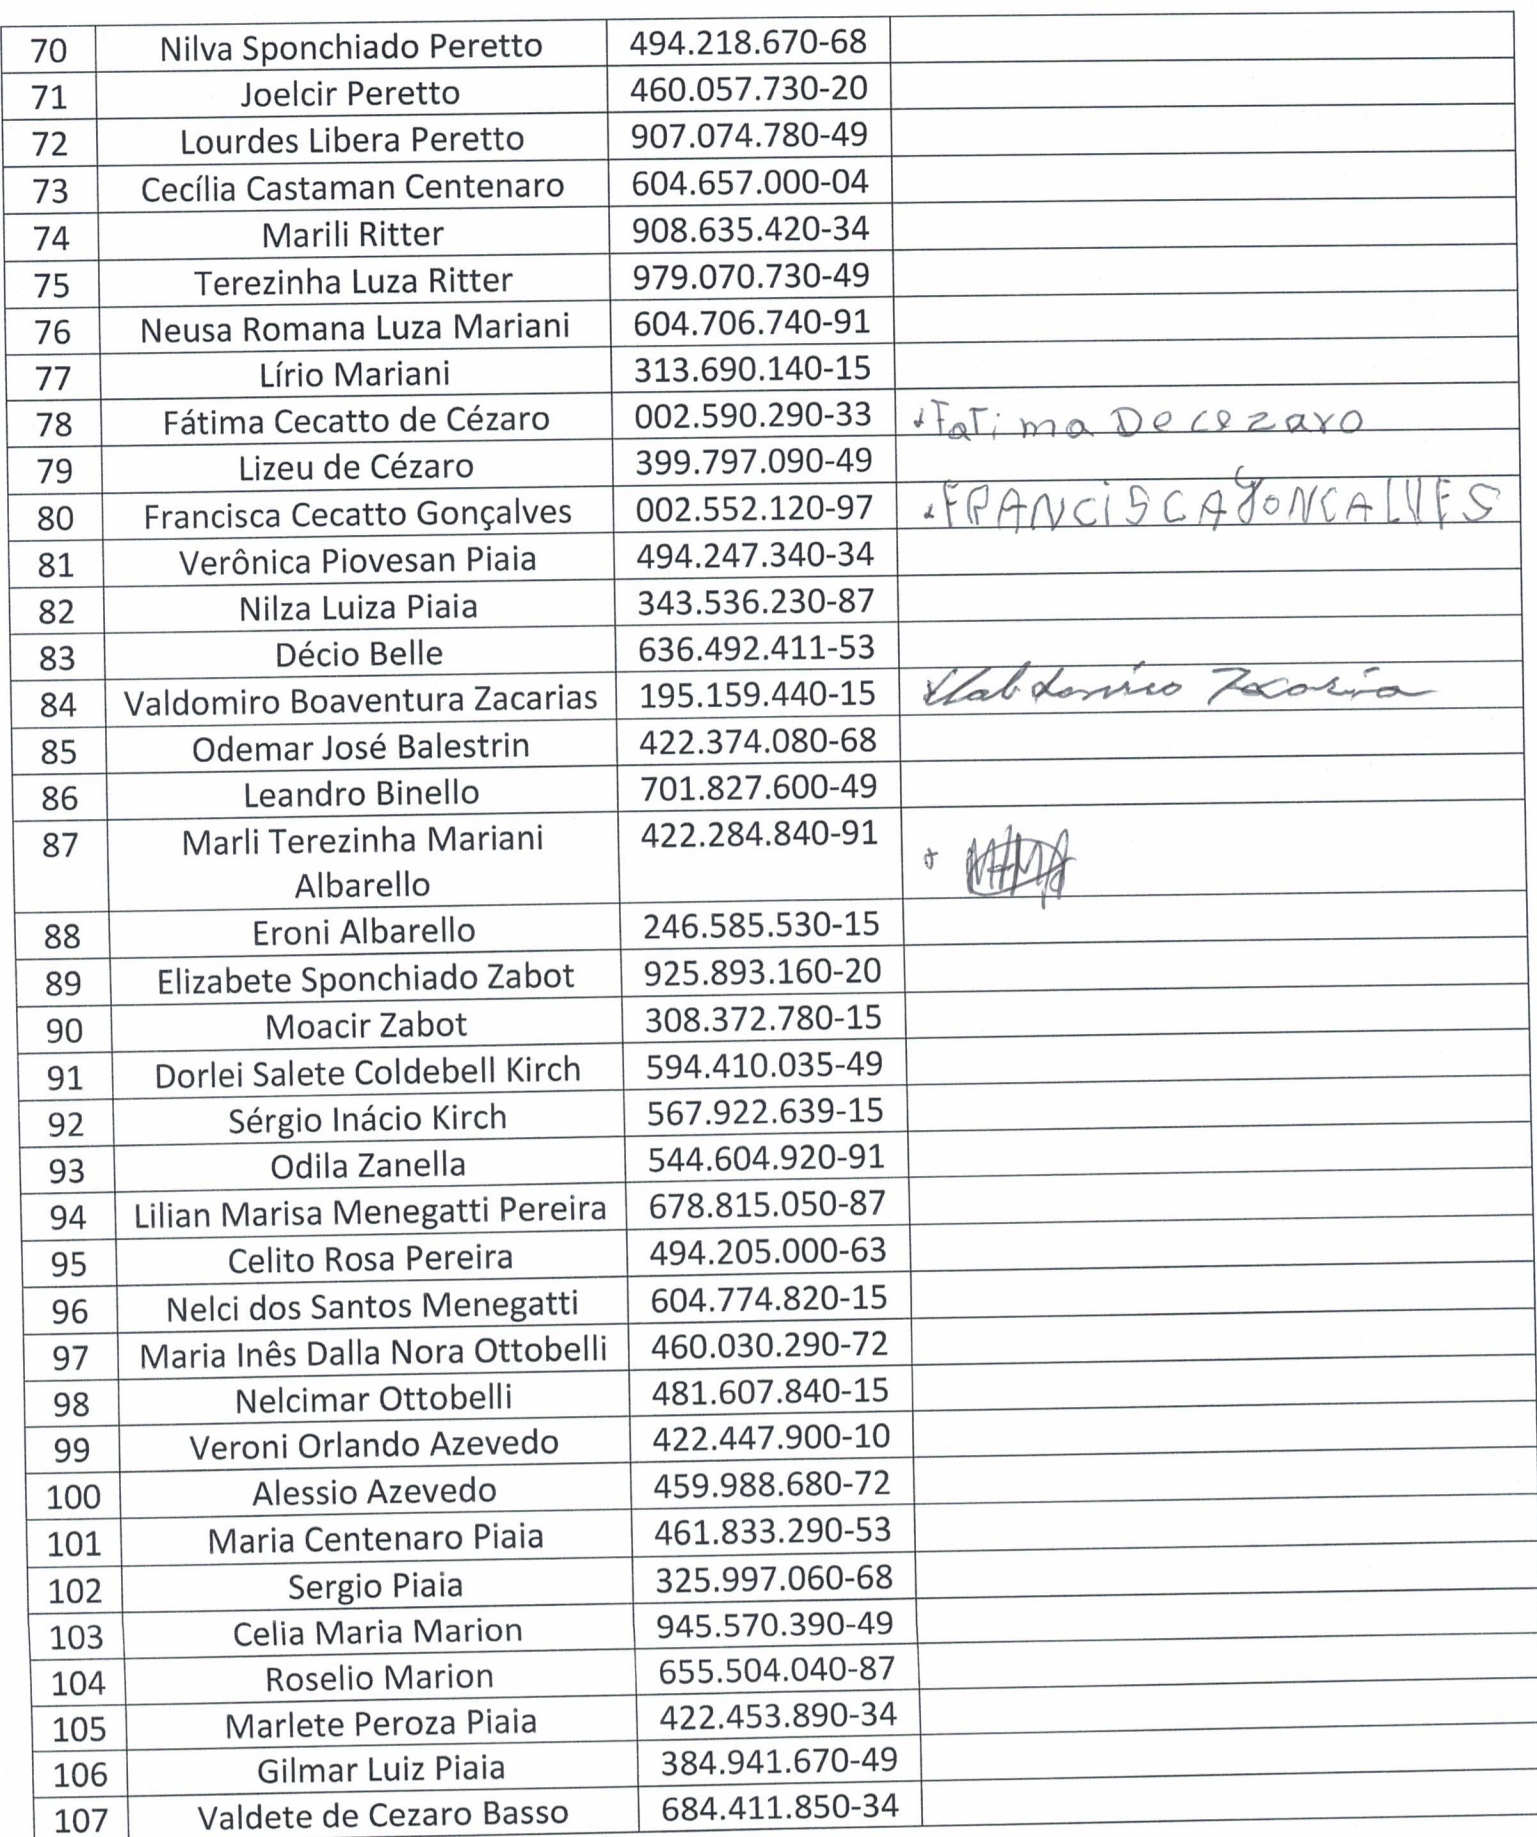 70 Nilva Sponchiado Peretto 494.218.670-68
71 Joelcir Peretto 460.057.730-20
72 Lourdes Libera Peretto 907.074.780-49
73 Cecília Castaman Centenaro 604.657.000-04
74 Marili Ritter 908.635.420-34
75 Terezinha Luza Ritter 979.070.730-49
76 Neusa Romana Luza Mariani 604.706.740-91
77 Lírio Mariani 313.690.140-15
78 Fátima Cecatto de Cézaro 002.590.290-33 Fatima De cezaro
79 Lizeu de Cézaro 399.797.090-49
80 Francisca Cecatto Gonçalves 002.552.120-97 FRANCISCA GONCALVES
81 Verônica Piovesan Piaia 494.247.340-34
82 Nilza Luiza Piaia 343.536.230-87
83 Décio Belle 636.492.411-53
84 Valdomiro Boaventura Zacarias 195.159.440-15
85 Odemar José Balestrin 422.374.080-68
86 Leandro Binello 701.827.600-49
87 Marli Terezinha Mariani 422.284.840-91
Albarello
88 Eroni Albarello 246.585.530-15
89 Elizabete Sponchiado Zabot 925.893.160-20
90 Moacir Zabot 308.372.780-15
91 Dorlei Salete Coldebell Kirch 594.410.035-49
92 Sérgio Inácio Kirch 567.922.639-15
93 Odila Zanella 544.604.920-91
94 Lilian Marisa Menegatti Pereira 678.815.050-87
95 Celito Rosa Pereira 494.205.000-63
96 Nelci dos Santos Menegatti 604.774.820-15
97 Maria Inês Dalla Nora Ottobelli 460.030.290-72
98 Nelcimar Ottobelli 481.607.840-15
99 Veroni Orlando Azevedo 422.447.900-10
100 Alessio Azevedo 459.988.680-72
101 Maria Centenaro Piaia 461.833.290-53
102 Sergio Piaia 325.997.060-68
103 Celia Maria Marion 945.570.390-49
104 Roselio Marion 655.504.040-87
105 Marlete Peroza Piaia 422.453.890-34
106 Gilmar Luiz Piaia 384.941.670-49
107 Valdete de Cezaro Basso 684.411.850-34